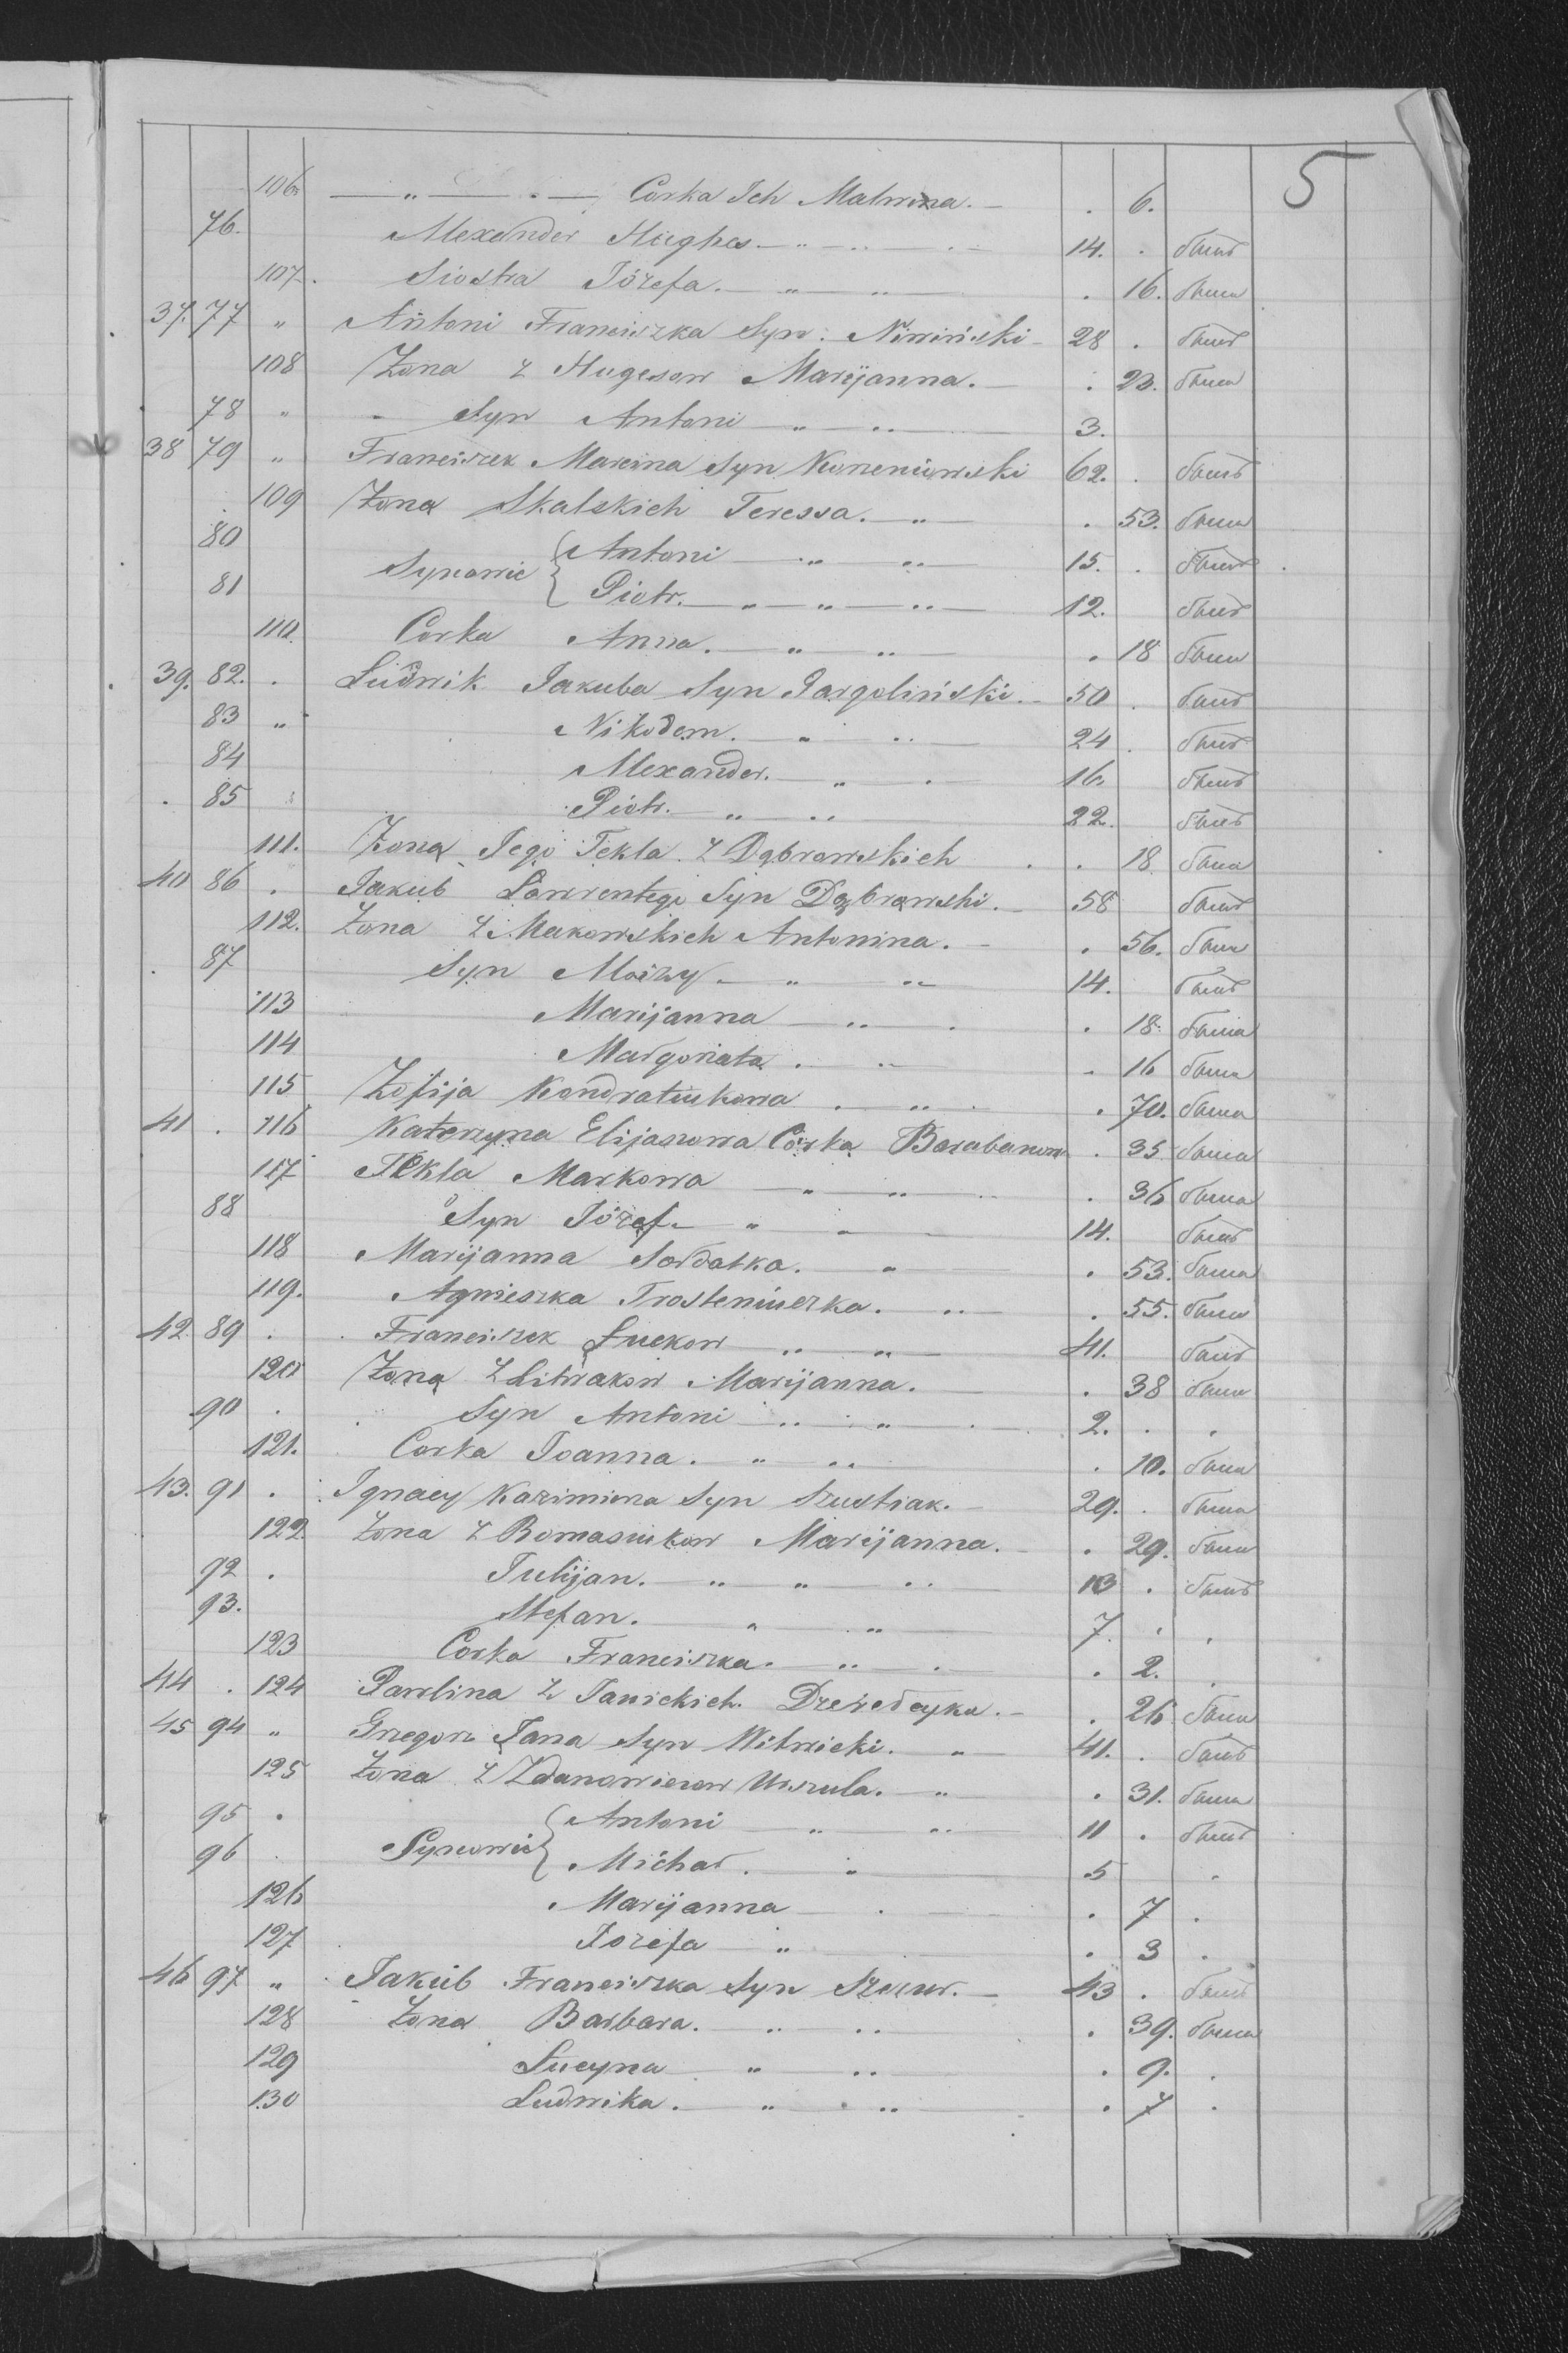 5
106. — " — " — Corka Ich Malwina. — . 6.
76. Alexander Hughes — " — 14. . былъ
107. Siostra Józefa. — " — " . 16. была
37. 77 " Antoni Franciszka Syn. Niwiński — 28 . былъ
108 Żona z Hugesow Marijanna. — . 23. была
78 " - Syn Antoni — " — " 3.
38 79 " Franciszek Marcina Syn Koneniowski 62. . былъ
109 Żona Skalskich Teressa. — " — . 53. была
80 Synowie { Antoni — " — " 15. . былъ
81 Piotr. — " — " — " — 12. былъ
110. Corka Anna. — " — " . 18 была
39. 82. . Ludwik Jakuba Syn Jargoliński. — 50 . былъ
83 " Nikodem. — " — " 24 . былъ
84 Alexander. — " — . — 16. былъ
85 Piotr. — " — " 22. былъ
111. Żona Jego Tekla z Dąbrowskich . . 18. была
40 86 . Jakub Lawrentego Syn Dąbrowski. — 58 былъ
112. Żona z Makowskich Antonina. — . 56. была
87 Syn Moizy — " — " 14. былъ
113 Marijanna — " . . 18. была
114 Małgoriata . — " . 16 была
115 Zofija Kondratiukowa . — " . 70. была
41 . 116 Katerzyna Elijaszowa Córka Barabanow . 35 была
117 Tekla Markowa — " — " . 36 была
88 Syn Józef — " — " 14. былъ
118 Marijanna Sołdatka. — " . 53. была
119. Agnieszka Trosteniuczka. — " . 55. была
42. 89 . Franciszek Łuckow — " — " 41. былъ
120 Żona z Litwakow Marijanna. — . 38 была
90 . Syn Antoni — " — " . 2. . .
121. Corka Joanna. — " — " . 10. была
43. 91 . Ignacy Kazimirza Syn Szustiak. — 29. . была
122. Żona z Bomasiukow Marijanna. — . 29. была
92 . Julijan. — " — " — " 13 . былъ
93. Stefan. — " — " — 7. . .
123 Corka Franciszka. — " — . . 2. .
44 . 124 Pawlina z Janickich Drezedeyka. — . 26 была
45 94 " Gregorz Jana Syn Witwicki. — " 41. . былъ
125 Żona z Zdanowiczow Urszula. — " . 31. была
95 . Synowie { Antoni — " — " 11 . былъ
96 . Michał. — " — 5 .
126 Marijanna — . — . 7 .
127 Jozefa — " — . 3 .
46 97 " Jakub Franciszka Syn Szczur. — 43 . былъ
128 Żona Barbara. — " — " . 39. была
129 Lucyna — " — " . 9. .
130 Ludwika. — " — " . 7 .